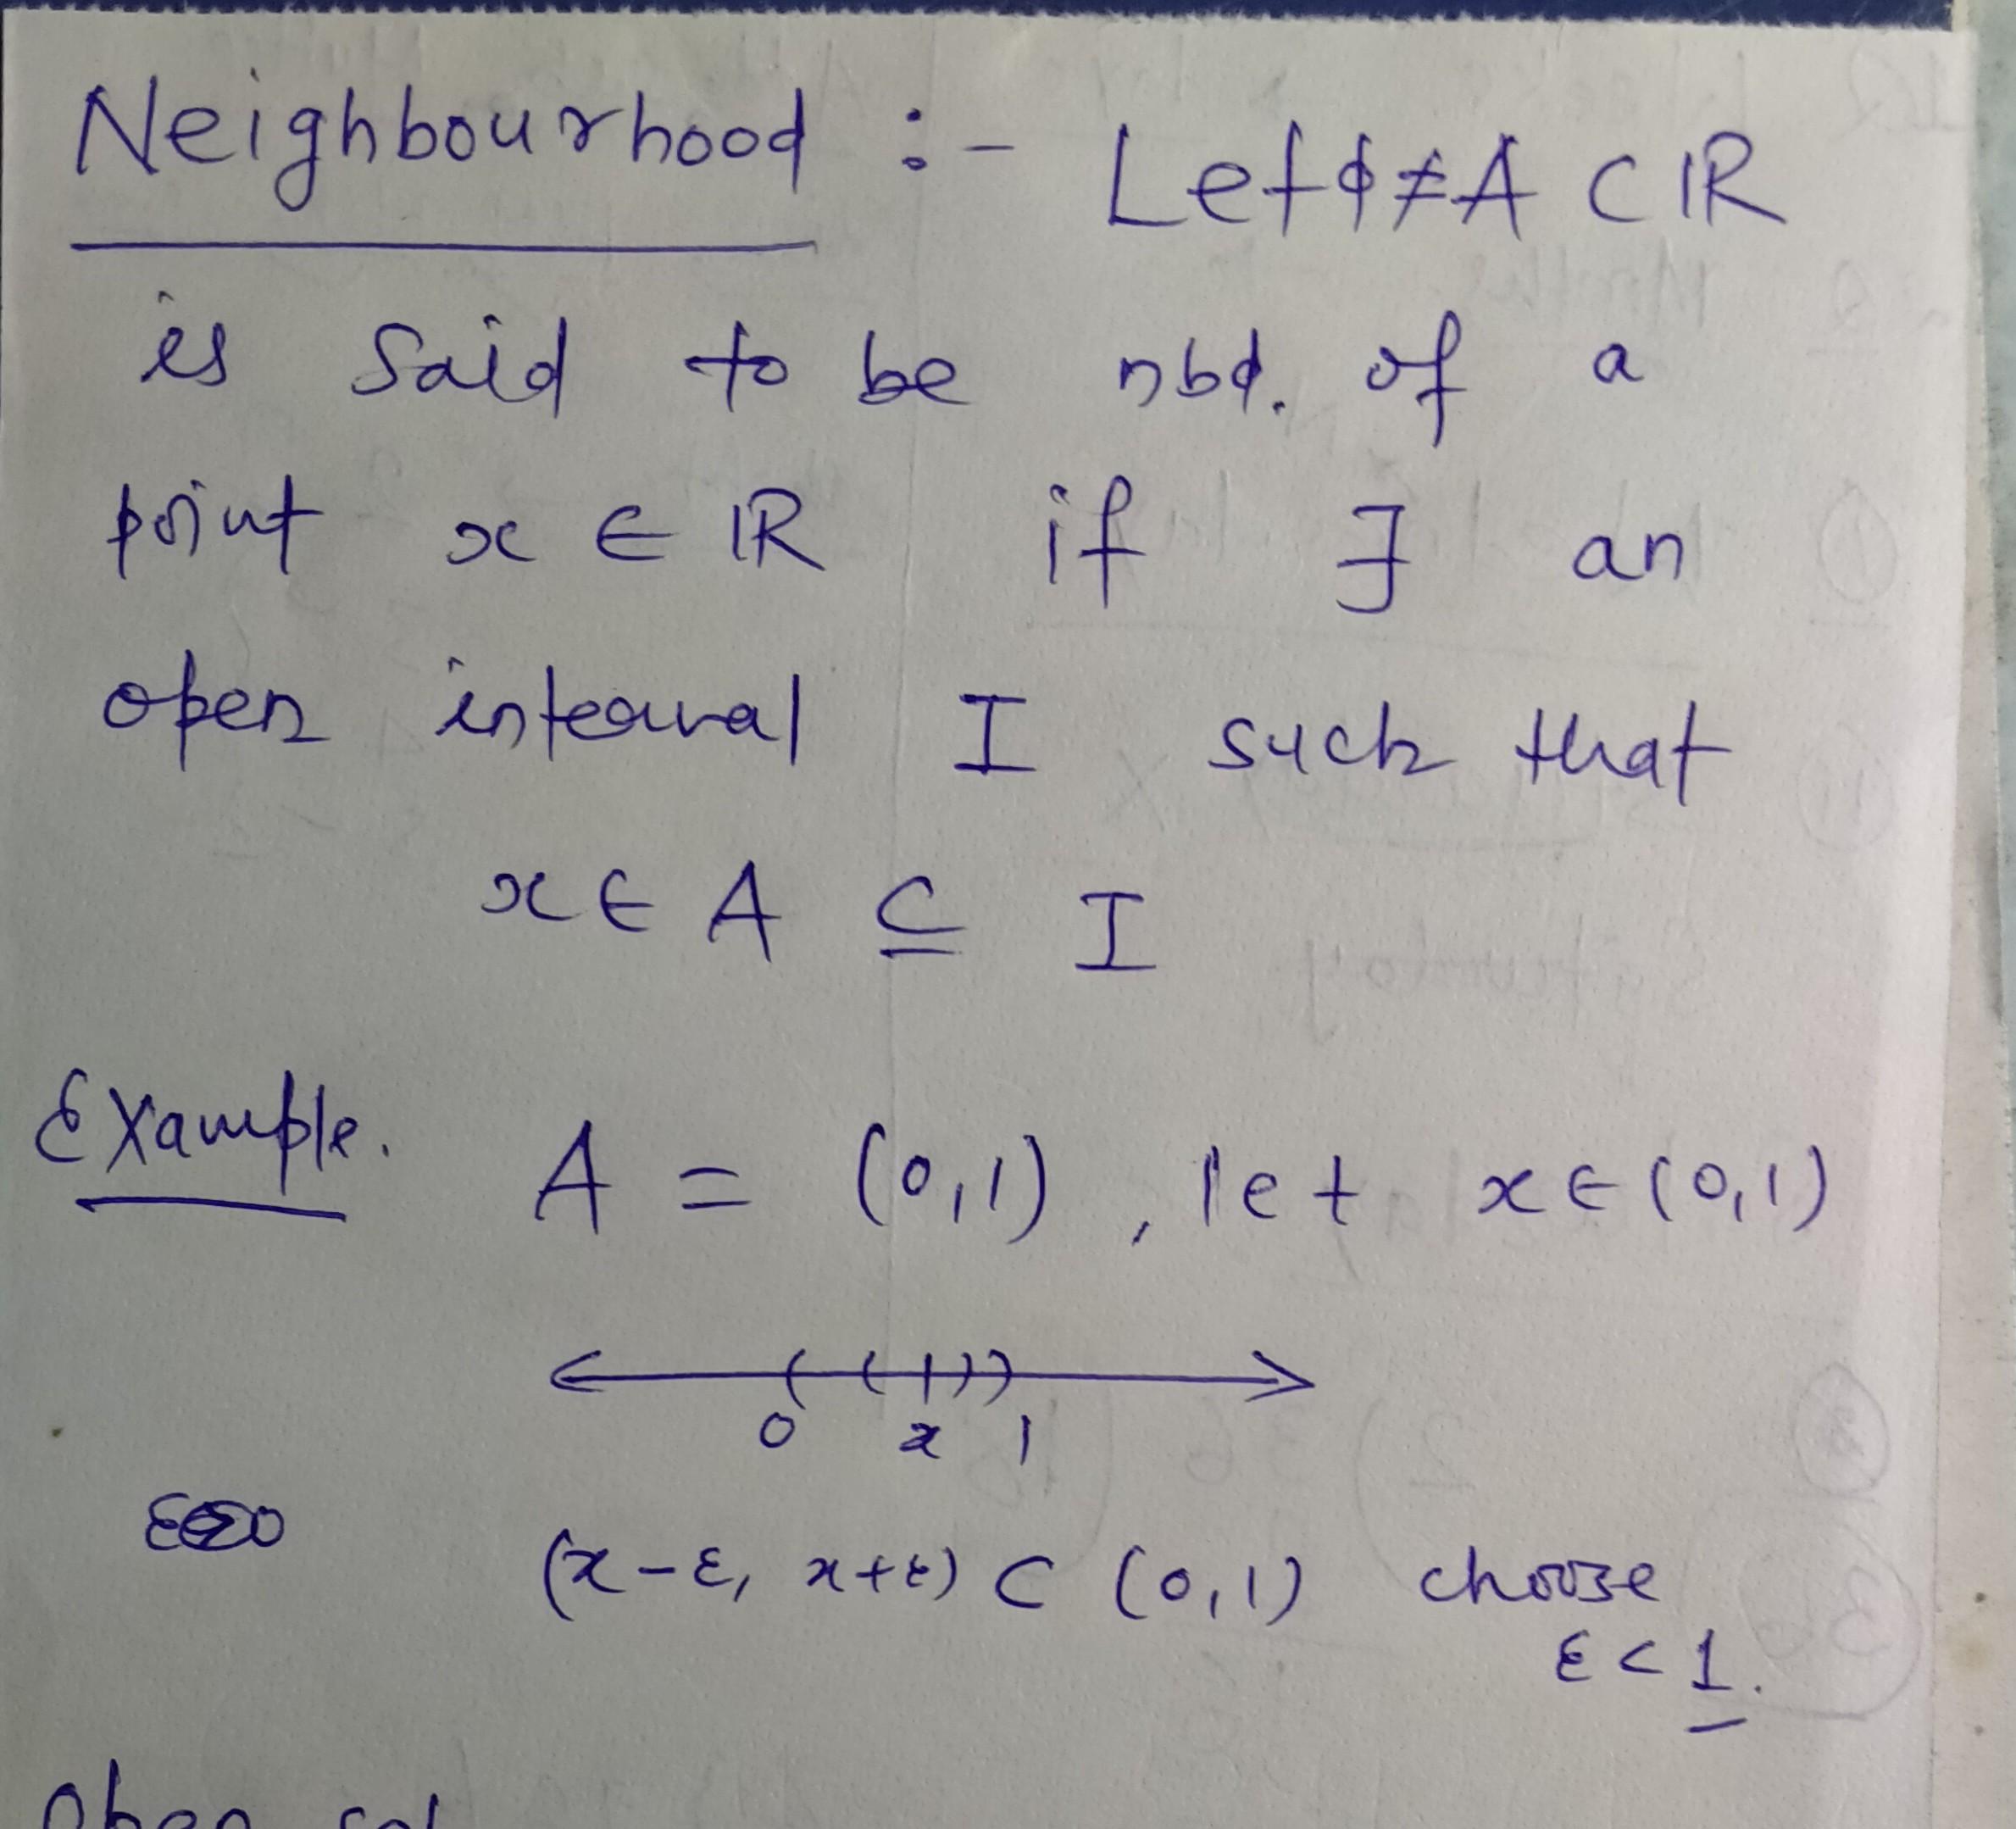 Neighbourhood :- Let ϕ≠A ⊂ ℝ
is said to be nbd. of a
point x ∈ ℝ if ∃ an
open interval I such that
x ∈ A ⊆ I
Example. A = (0,1) , let x ∈ (0,1)
0 x 1
(x-ε, x+ε) ⊂ (0,1) choose
ε < 1.